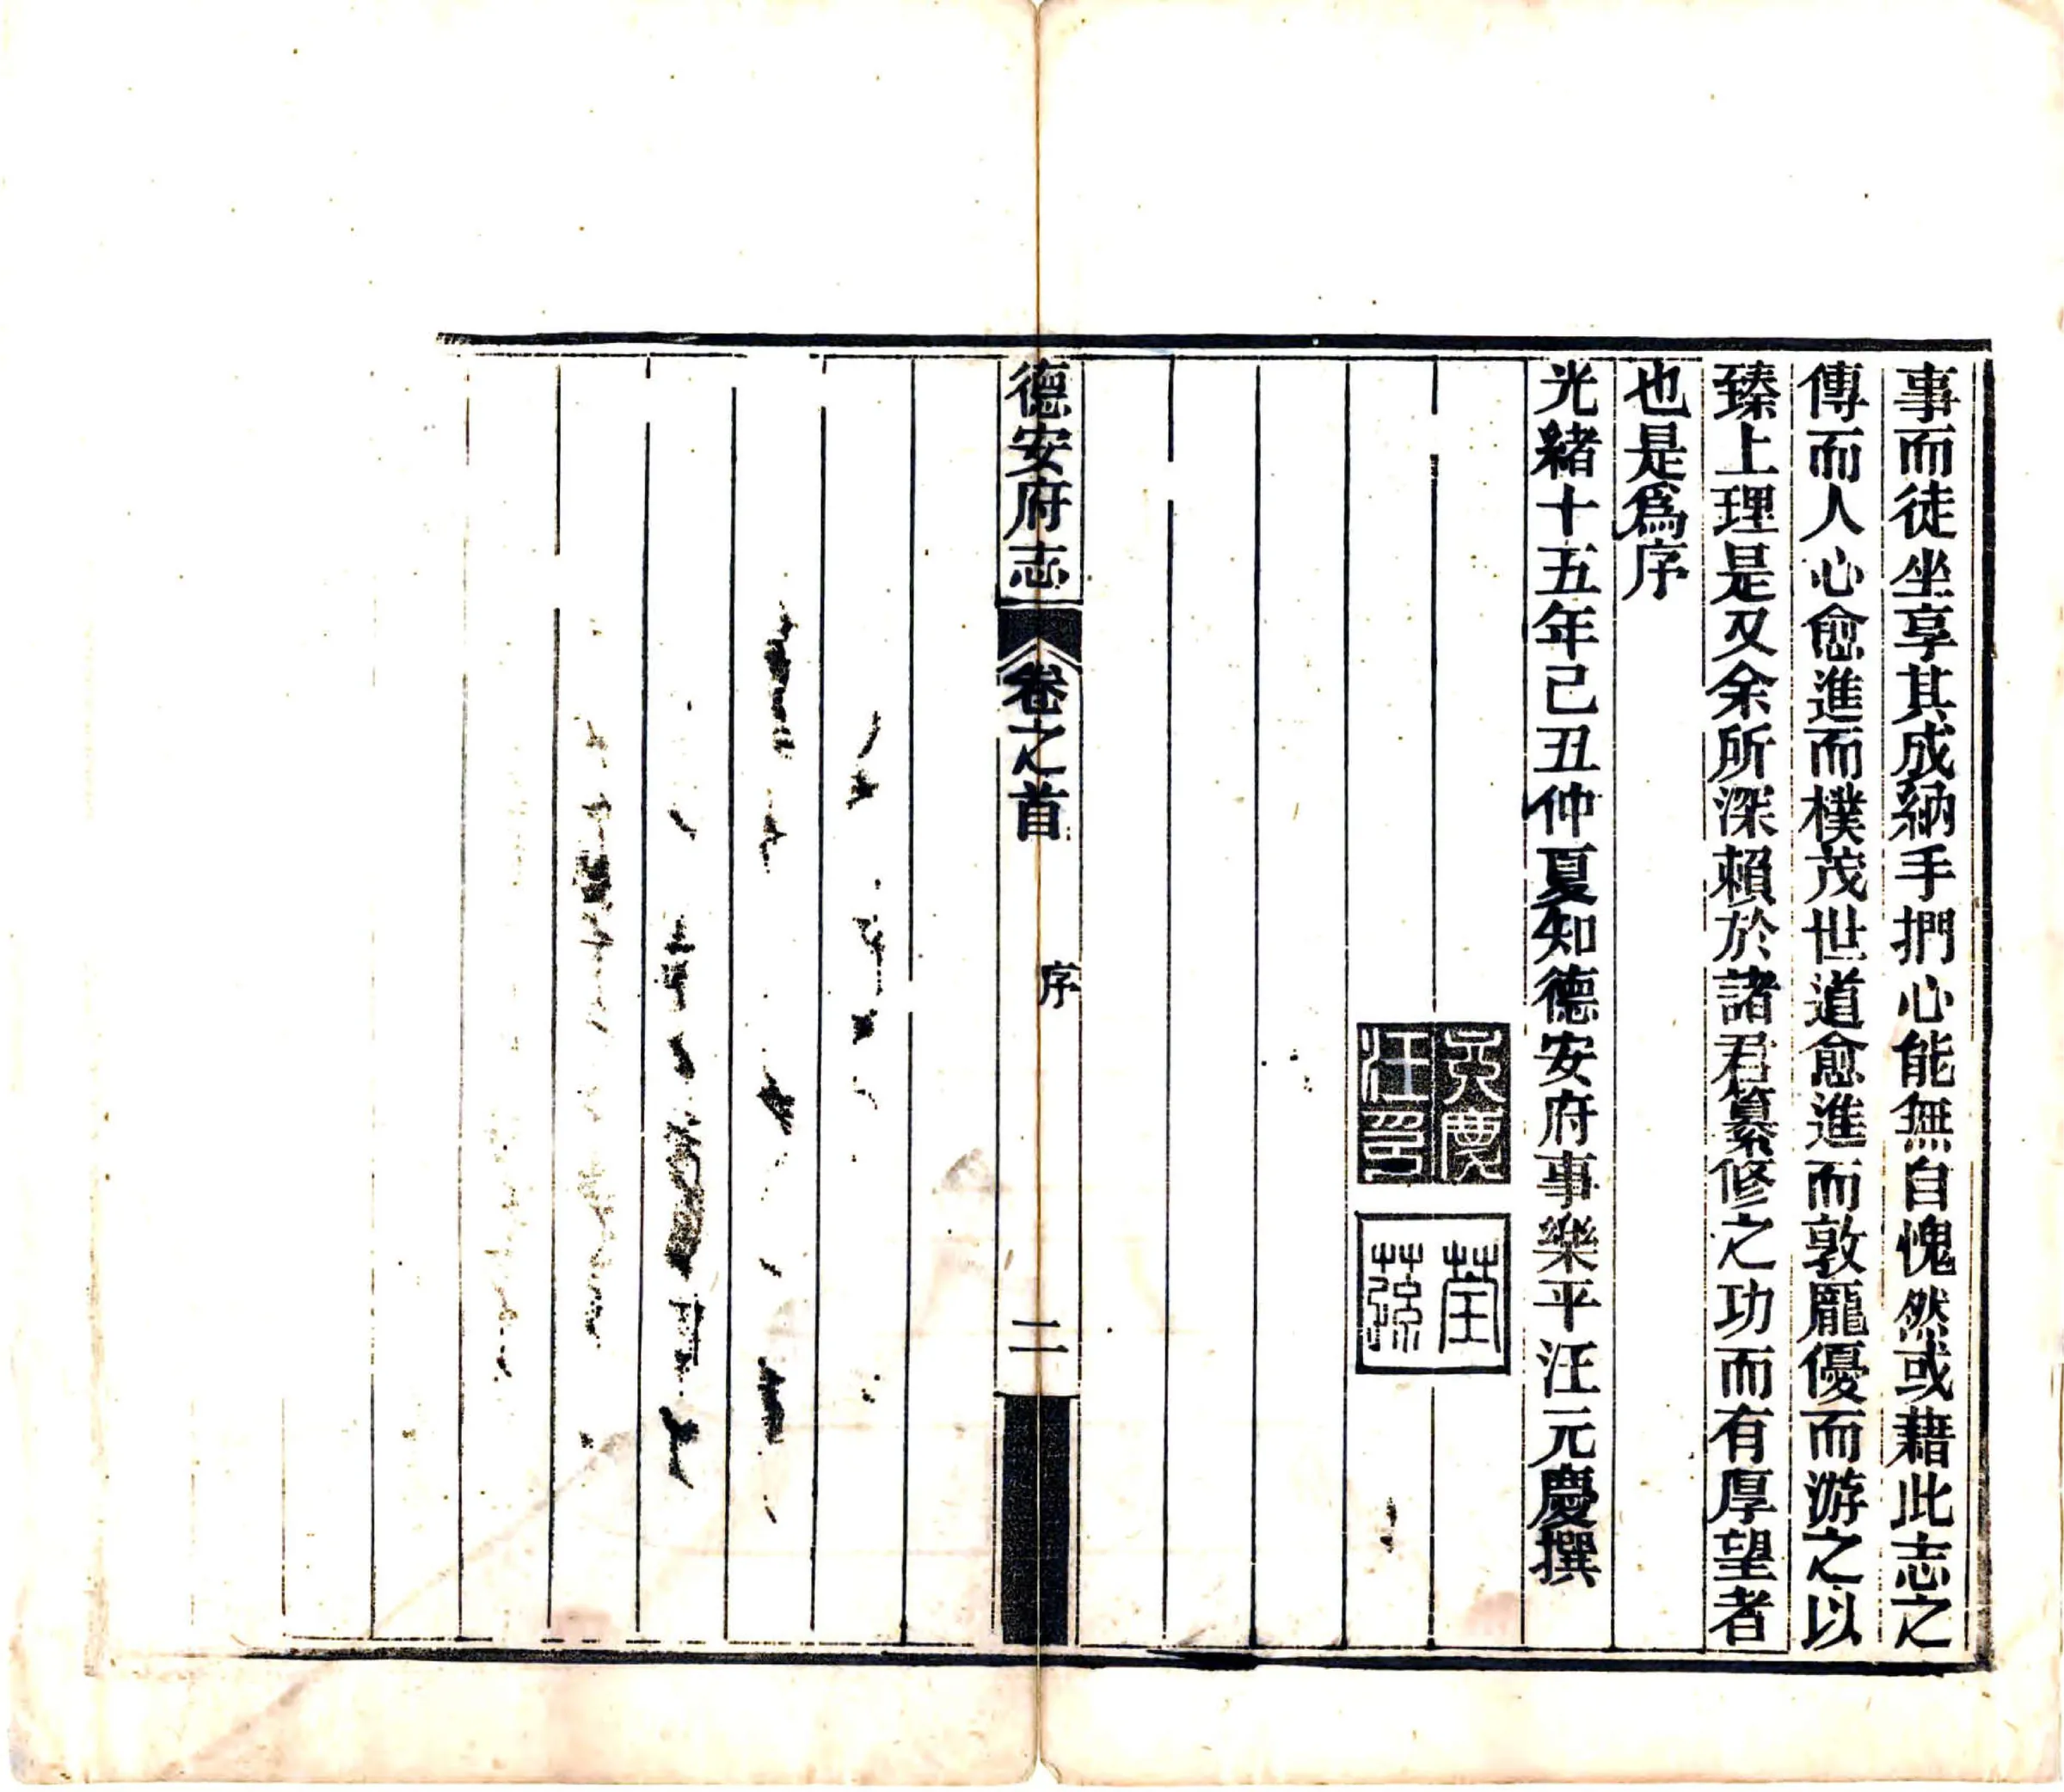 事而徒坐享其成納手捫心能無自愧然或藉此志之
傳而人心愈進而樸茂世道愈進而敦龐優而游之以
臻上理是又余所深賴於諸君纂修之功而有厚望者
也是爲序
光緒十五年己丑仲夏知德安府事樂平汪元慶撰
元慶
汪印
荃
蓀
德安府志
卷之首
序
二